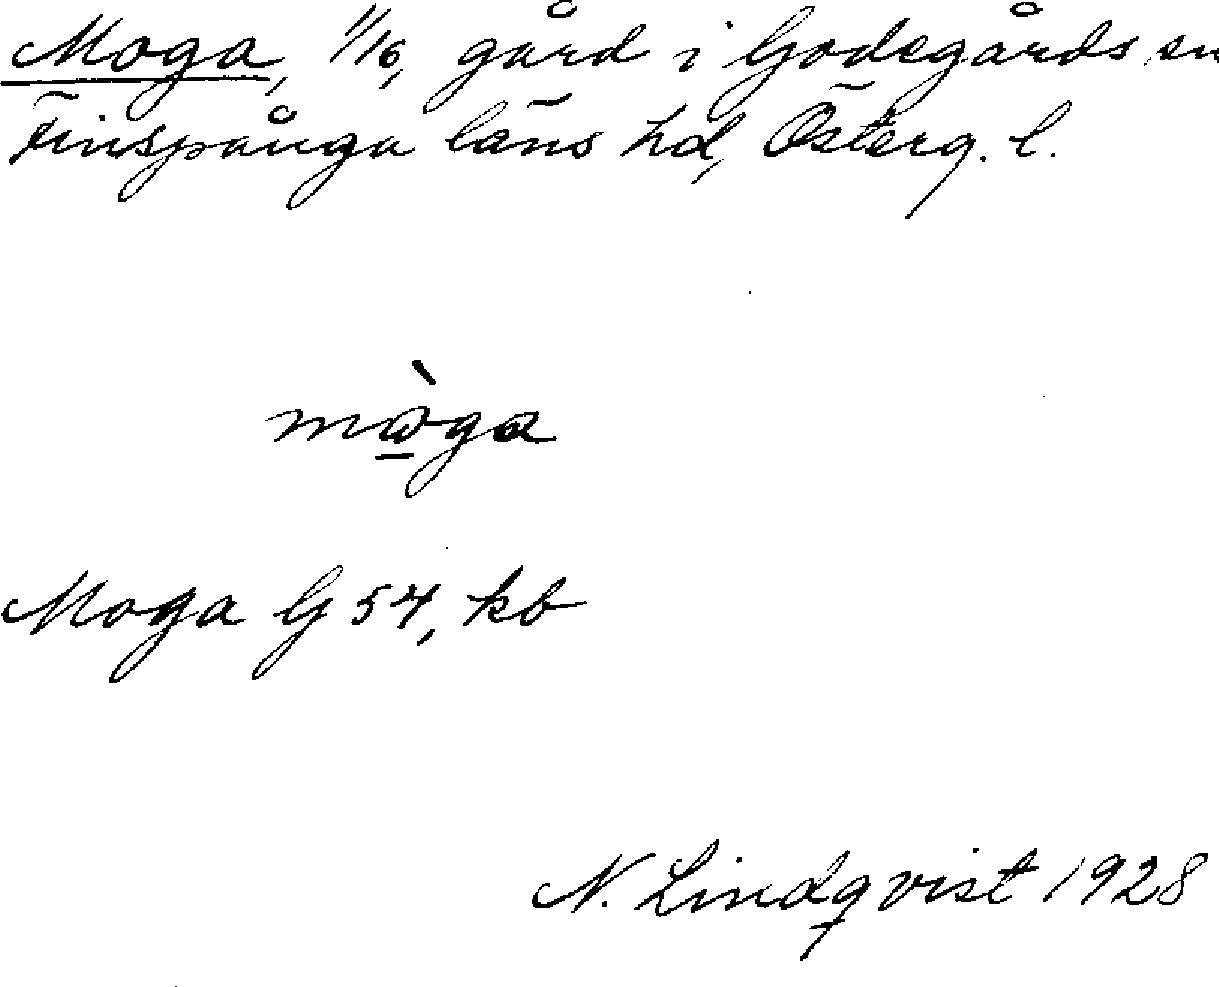 Moga, 1/16, gård i Godegårds sn
Finspånga läns hd, Österg. l.
mὼ̲ga
Moga G 54, kb
N. Lindqvist 1928